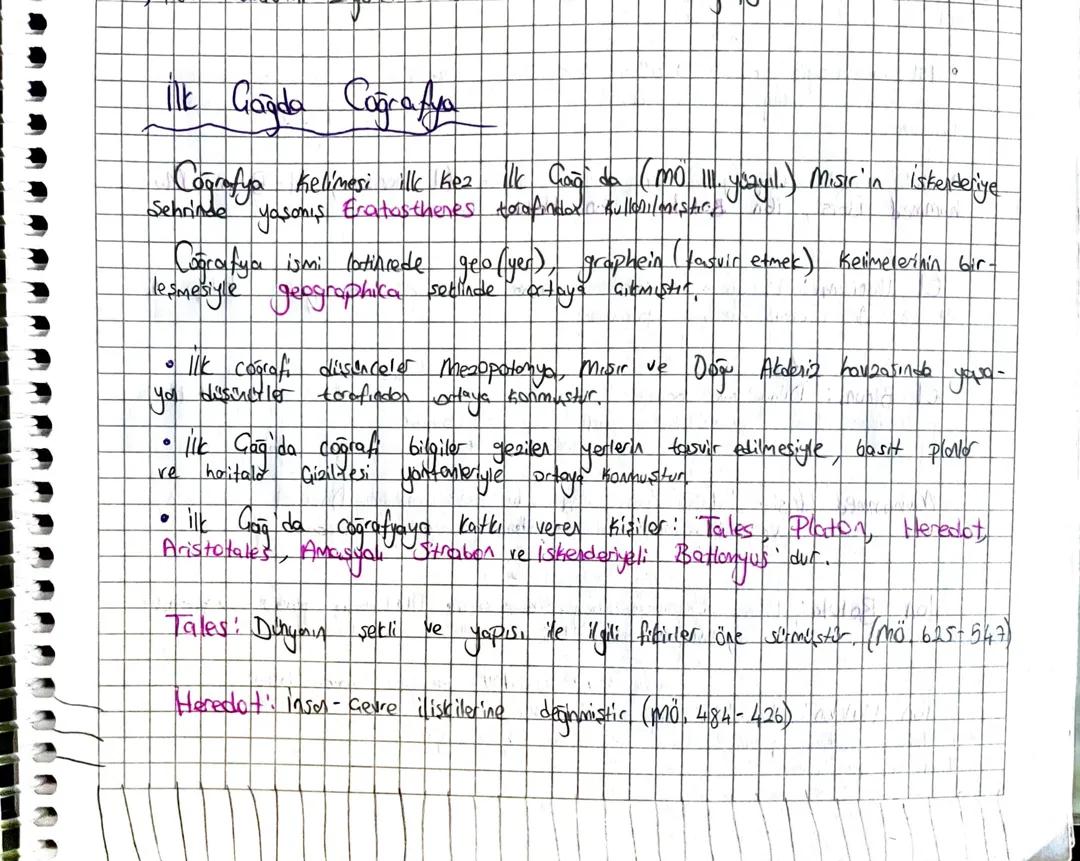 İlk Çağda Coğrafya
Coğrafya kelimesi ilk kez İlk Çağ'da (MÖ III. yüzyıl.) Mısır'ın İskenderiye
şehrinde yaşamış Eratosthenes tarafından kullanılmıştır.
Coğrafya ismi latincede geo (yer), graphein (tasvir etmek) kelimelerinin bir-
leşmesiyle geographica şeklinde ortaya çıkmıştır.
• İlk coğrafi düşünceler Mezopotamya, Mısır ve Doğu Akdeniz havzasında yaşa-
yan düşünürler tarafından ortaya konmuştur.
• İlk Çağ'da coğrafi bilgiler gezilen yerlerin tasvir edilmesiyle, basit planlar
ve haritalar çizilmesi yöntemleriyle ortaya konmuştur.
• İlk Çağ'da coğrafyaya katkı veren kişiler: Tales, Platon, Heredot,
Aristotales, Amasyalı Strabon ve İskenderiyeli Batlamyus'dur.
Tales: Dünyanın şekli ve yapısı ile ilgili fikirler öne sürmüştür. (MÖ, 625-547)
Heredot: İnsan-Çevre ilişkilerine değinmiştir (MÖ, 484-426)